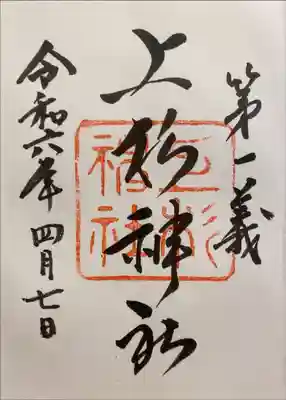 第一義
上杉神社
令和六年 四月七日
上杉神社